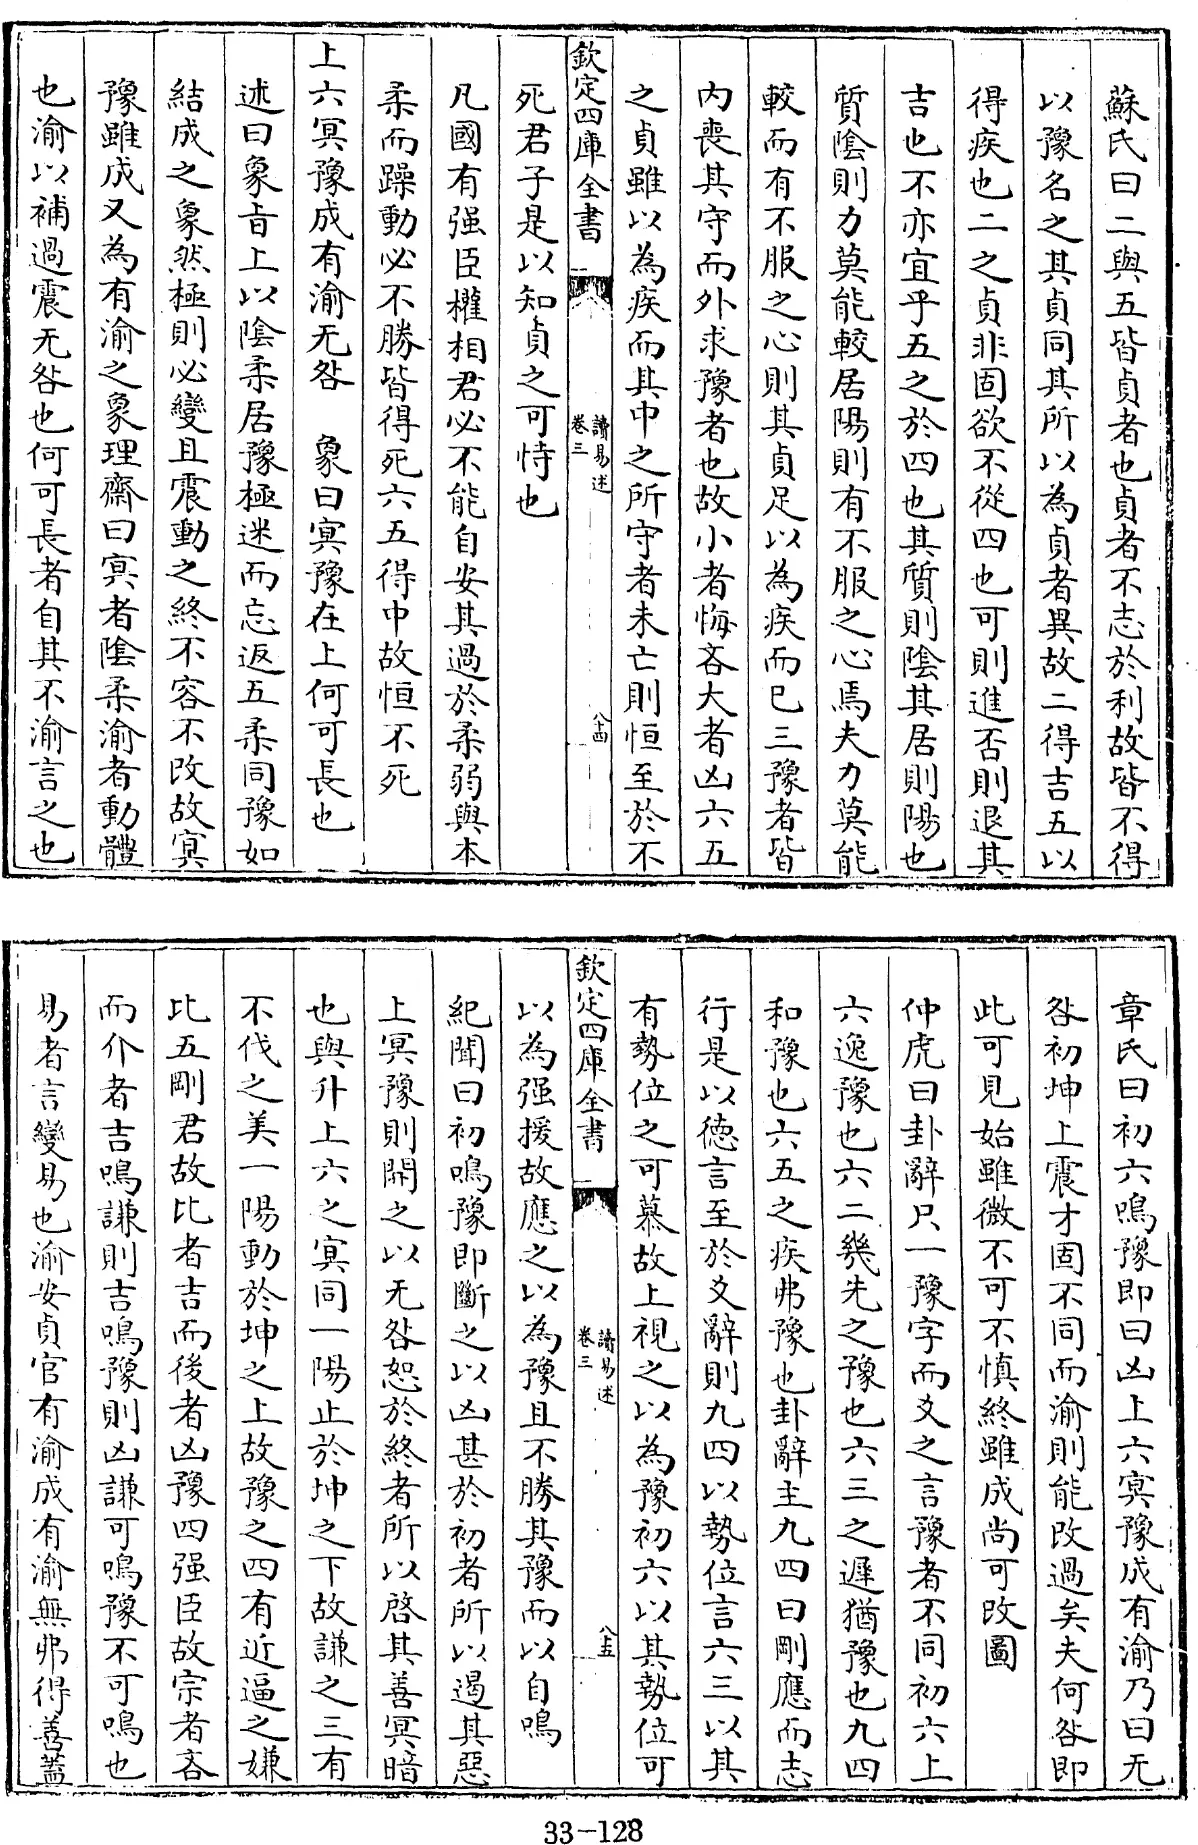 蘇氏曰二與五皆貞者也貞者不志於利故皆不得
以豫名之其貞同其所以為貞者異故二得吉五以
得疾也二之貞非固欲不從四也可則進否則退其
吉也不亦宜乎五之於四也其質則陰其居則陽也
質陰則力莫能較居陽則有不服之心焉夫力莫能
較而有不服之心則其貞足以為疾而已三豫者皆
内喪其守而外求豫者也故小者悔吝大者凶六五
之貞雖以為疾而其中之所守者未亡則恒至於不
欽定四庫全書
讀易述
卷三
八十四
死君子是以知貞之可恃也
凡國有强臣權相君必不能自安其過於柔弱與本
柔而躁動必不勝皆得死六五得中故恒不死
上六冥豫成有渝无咎 象曰冥豫在上何可長也
述曰象旨上以陰柔居豫極迷而忘返五柔同豫如
結成之象然極則必變且震動之終不容不改故冥
豫雖成又為有渝之象理齋曰冥者陰柔渝者動體
也渝以補過震无咎也何可長者自其不渝言之也
章氏曰初六鳴豫即曰凶上六冥豫成有渝乃曰无
咎初坤上震才固不同而渝則能改過矣夫何咎即
此可見始雖微不可不慎終雖成尚可改圖
仲虎曰卦辭只一豫字而爻之言豫者不同初六上
六逸豫也六二幾先之豫也六三之遲猶豫也九四
和豫也六五之疾弗豫也卦辭主九四曰剛應而志
行是以德言至於爻辭則九四以勢位言六三以其
有勢位之可慕故上視之以為豫初六以其勢位可
欽定四庫全書
讀易述
卷三
八十五
以為强援故應之以為豫且不勝其豫而以自鳴
紀聞曰初鳴豫即斷之以凶甚於初者所以遏其惡
上冥豫則開之以无咎恕於終者所以啓其善冥暗
也與升上六之冥同一陽止於坤之下故謙之三有
不伐之美一陽動於坤之上故豫之四有近逼之嫌
比五剛君故比者吉而後者凶豫四强臣故宗者吝
而介者吉鳴謙則吉鳴豫則凶謙可鳴豫不可鳴也
易者言變易也渝安貞官有渝成有渝無弗得善蓋
33-128